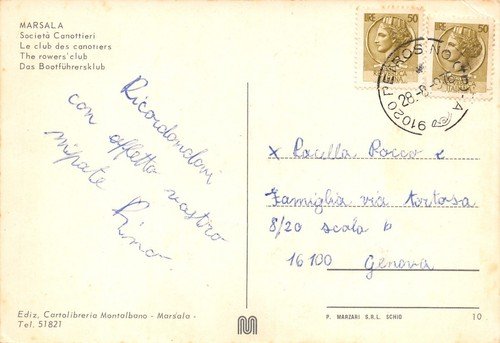 MARSALA
Società Canottieri
Le club des canotiers
The rowers'club
Das Bootführersklub
LIRE 50
LIRE 50
91020 PETROSINO
28-8-
Ricordandovi
con affetto vostro
nipote
Rino.
x Lacilla Rocco e
Famiglia via tortosa
8/20 scala b
16100 Genova
Ediz. Cartolibreria Montalbano - Marsala -
Tel. 51821
P. MARZARI S.R.L. SCHIO
10